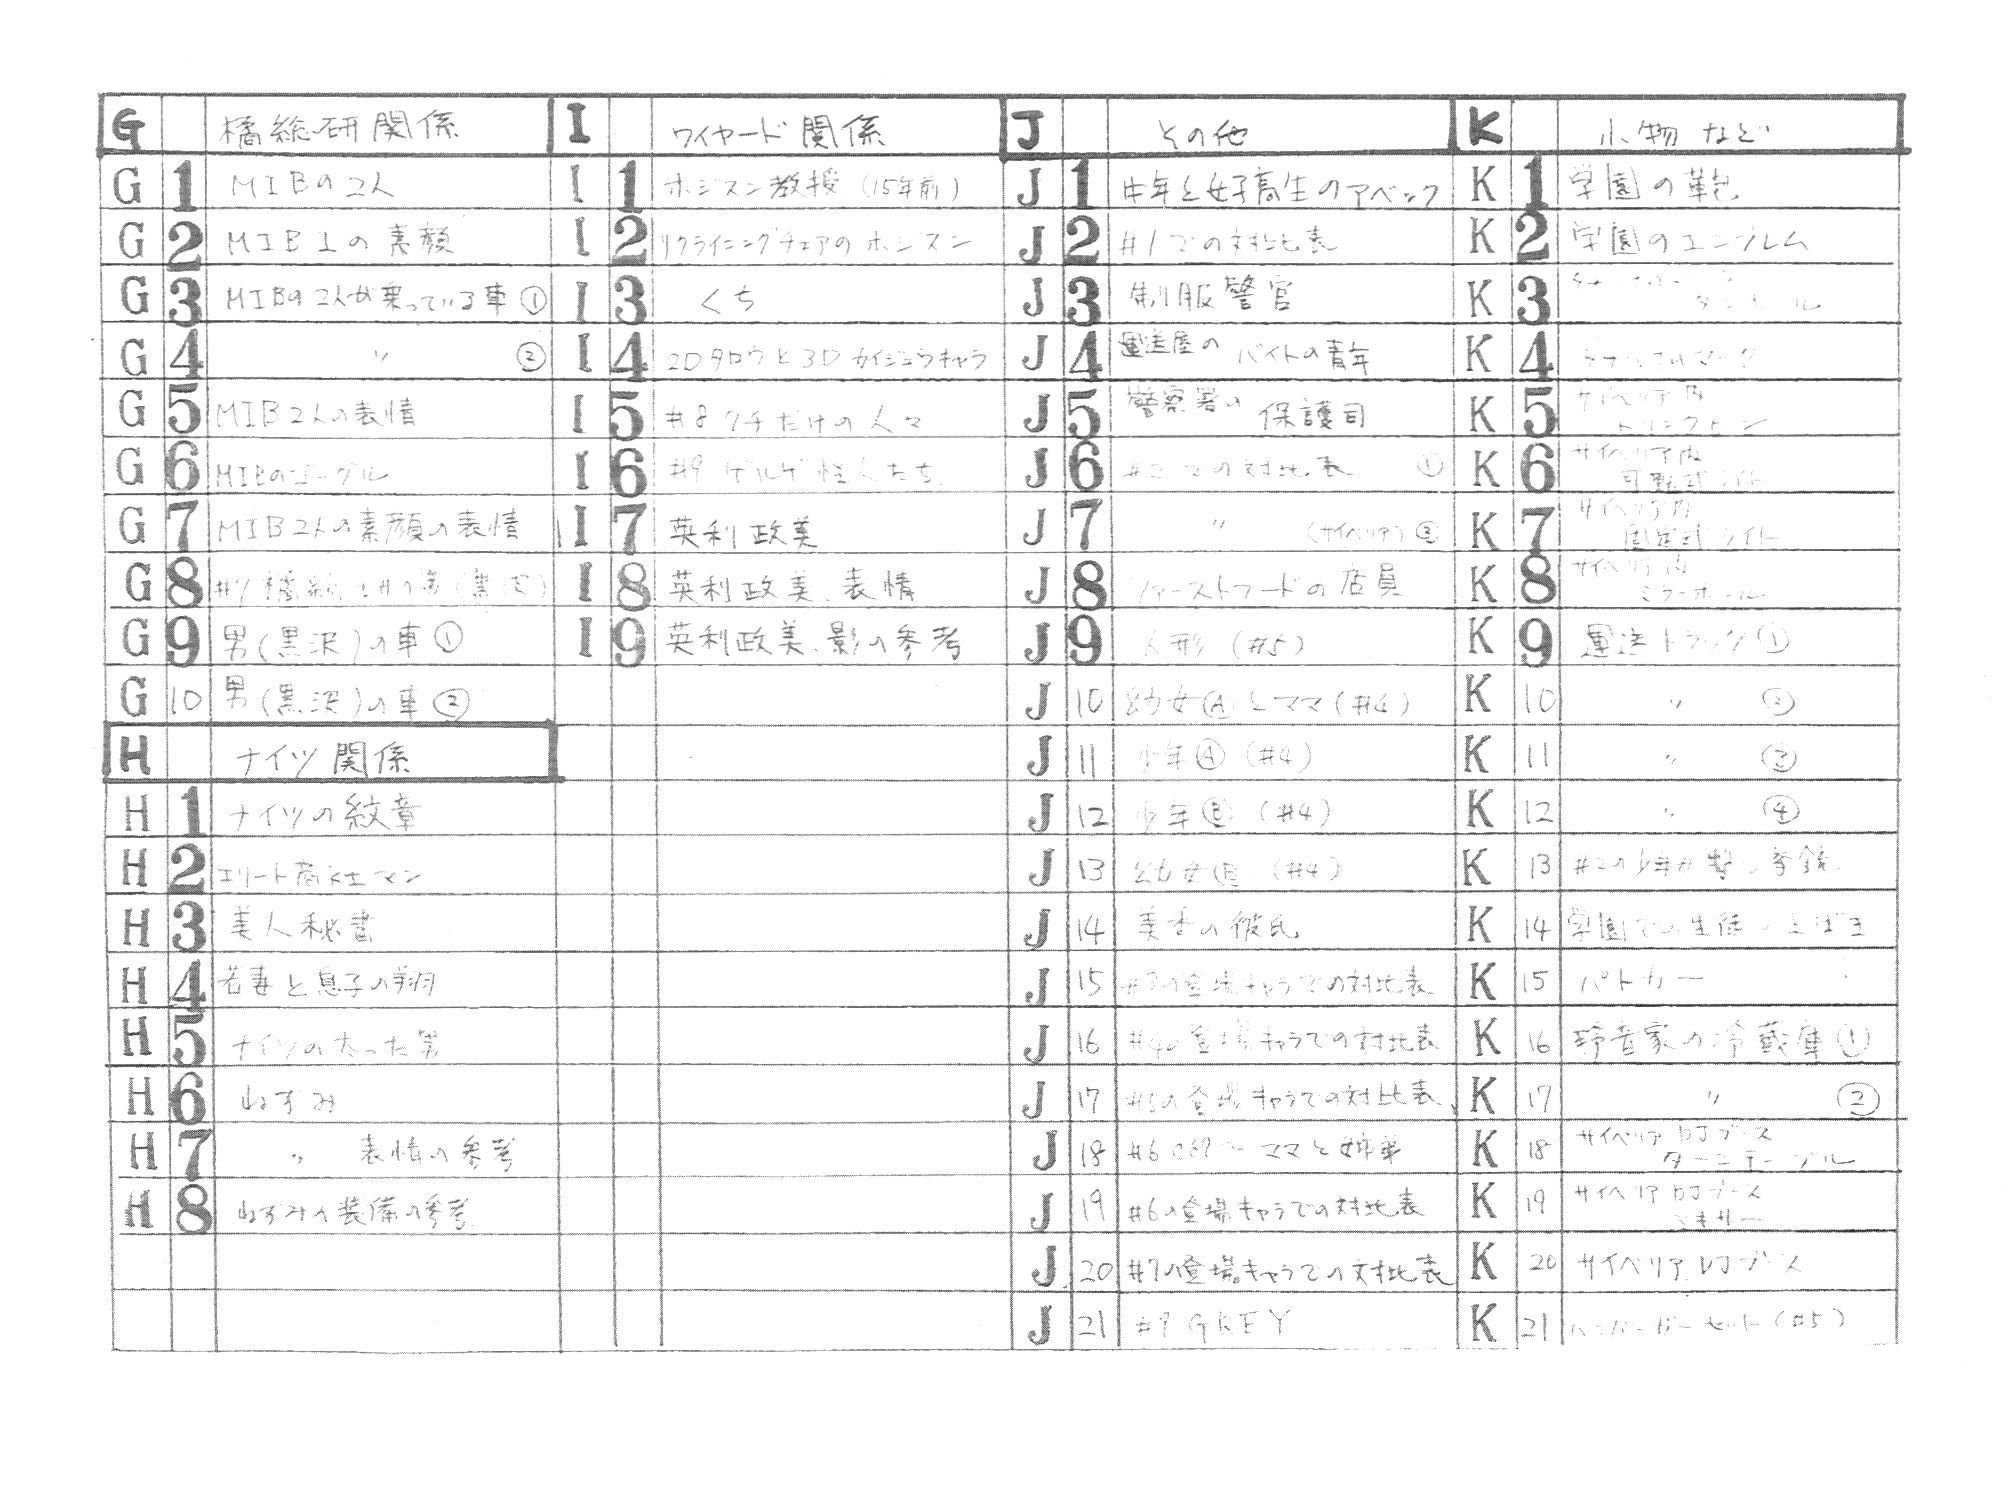 G 橘総研関係
G1 MIBの2人
G2 MIB1の素顔
G3 MIBの2人が乗っている車①
G4 〃 ②
G5 MIB2人の表情
G6 MIBのゴーグル
G7 MIB2人の素顔の表情
G8 #1橘総
G9 男(黒沢)の車①
G10 男(黒沢)の車②
H ナイツ関係
H1 ナイツの紋章
H2 エリート商社マン
H3 美人秘書
H4 若妻と息子の翔
H5 ナイツの太った男
H6 ねずみ
H7 〃 表情の参考
H8 ねずみの装備の参考
I ワイヤード関係
I1 ホジスン教授(15年前)
I2 リクライニングチェアのホジスン
I3 くち
I4 2Dタロウと3Dカイジュウキャラ
I5 #8 クチだけの人々
I6 #9 ゲルゲ怪人たち
I7 英利政美
I8 英利政美、表情
I9 英利政美、影の参考
J その他
J1 中年と女子高生のアベック
J2 #1での対比表
J3 制服警官
J4 運送屋の
バイトの青年
J5 警察署の
保護司
J6 #2での対比表 ①
J7 〃 (サイベリア)②
J8 ファーストフードの店員
J9 人形(#5)
J10 幼女Ⓐとママ(#4)
J11 少年Ⓐ(#4)
J12 少年Ⓑ(#4)
J13 幼女Ⓑ(#4)
J14 美香の彼氏
J15 #3の登場キャラでの対比表
J16 #4の登場キャラでの対比表
J17 #5の登場キャラでの対比表
J18 #6 ママと姉弟
J19 #6の登場キャラでの対比表
J20 #7の登場キャラでの対比表
J21 #9 GKEY
K 小物など
K1 学園の鞄
K2 学園のエンブレム
K3
K4 マーク
K5 サイベリア内
K6 サイベリア内
可動式ライト
K7 サイベリア内
固定式ライト
K8 サイベリア内
ミラーボール
K9 運送トラック①
K10 〃 ②
K11 〃 ③
K12 〃 ④
K13 #2の少年が
K14 学園での生徒の上ばき
K15 パトカー
K16 玲音家の冷蔵庫①
K17 〃 ②
K18 サイベリア DJブース
ターンテーブル
K19 サイベリア DJブース
ミキサー
K20 サイベリア DJブース
K21 ハンバーガーセット(#5)